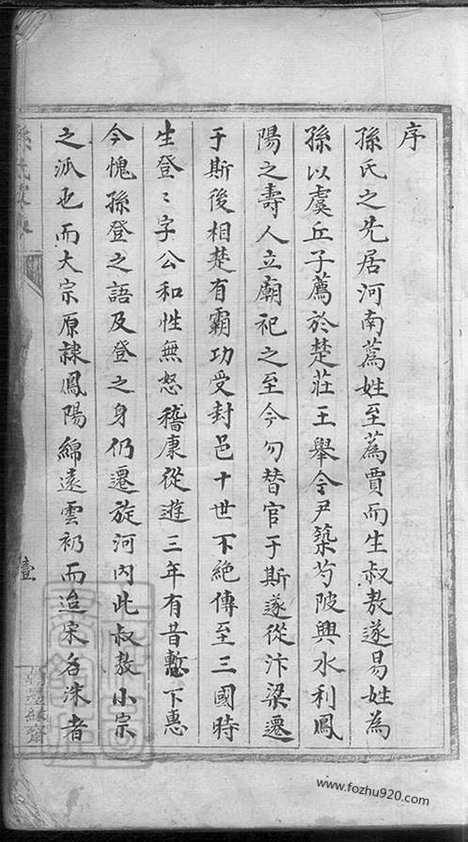 序
孫氏之先居河南蔿姓至蔿賈而生叔敖遂易姓為
孫以虞丘子薦於楚莊王舉令尹築芍陂興水利鳳
陽之壽人立廟祀之至今勿替官于斯遂從汴梁遷
于斯後相楚有霸功受封邑十世不絕傳至三國時
生登〻字公和性無怒嵇康從遊三年有昔慙下惠
今愧孫登之語及登之身仍遷旋河內此叔敖小宗
之派也而大宗原隸鳳陽綿遠雲礽而迨宋名洙者
壹
www.fozhu920.com